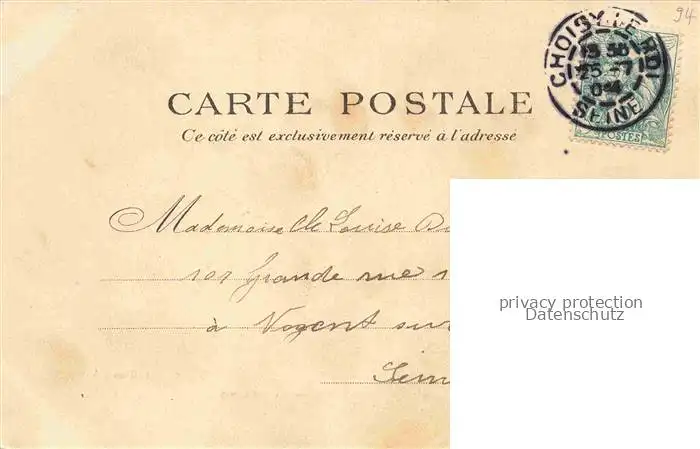 94
CHOISY-LE-ROI
25
04
SEINE
POSTES
CARTE POSTALE
Ce côté est exclusivement réservé à l'adresse
Mademoiselle Louise
101 Grande rue
à Nogent sur
privacy protection
Datenschutz